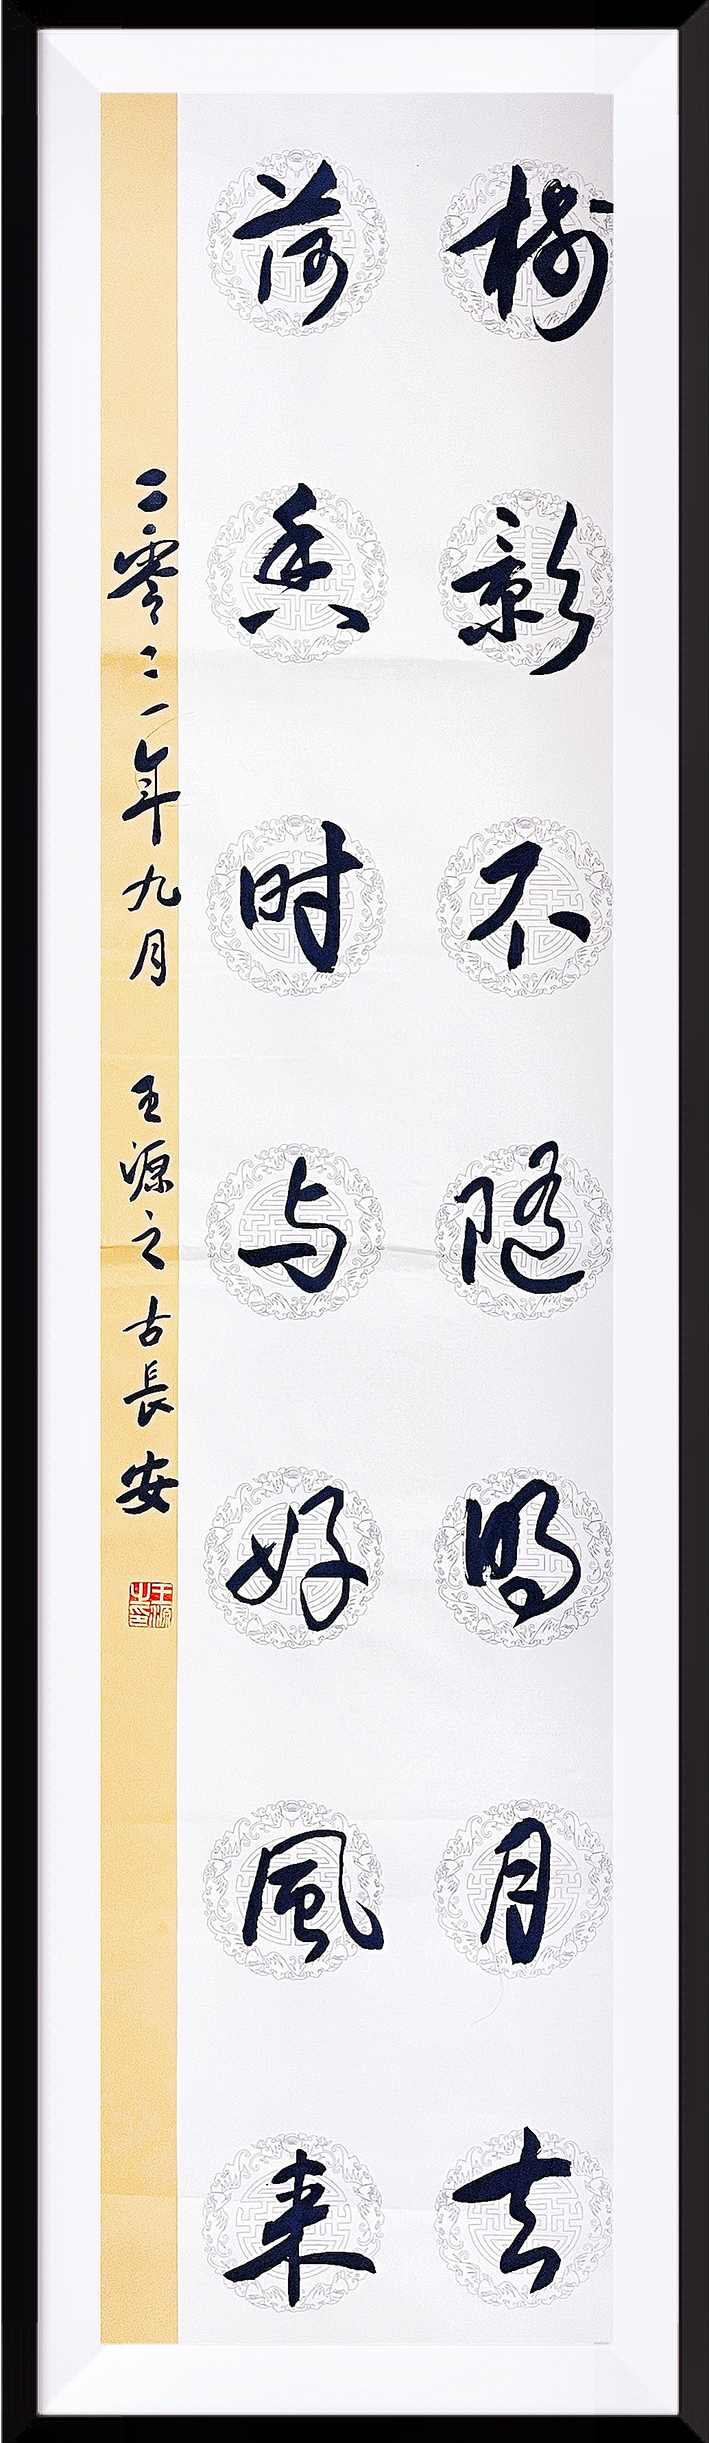 樹影不随明月去
荷香时与好風来
二零二一年九月 王源之 古長安
王源之印